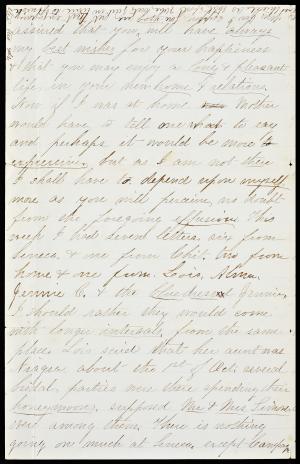 assured that you will have always
my best wishes for your happiness
& that you may enjoy a long & pleasant
life in your new home & relations.
Now if I was at home Mother
would have to tell one what to say
and perhaps it would be more to
but as I am not there
I shall have to depend upon myself
more as you will perceive no doubt
from the foregoing effusion. This
week I had seven letters, six from
Seneca, & one from Chit. two from
home & one from Lois, Alma
Jennie C. & the Jennie.
I should rather they would come
with longer intervals from the same
place. Lois said that her aunt was
about the 1st of Oct. several
bridal parties were there spending their
honeymoon, supposed Mr & Mrs
were among them. There is nothing
going on much at Seneca except